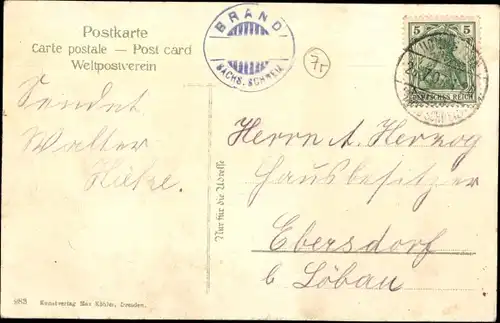 Postkarte
Carte postale — Post card
Weltpostverein
BRAND
SÄCHS. SCHWEIZ
5 5
DEUTSCHES REICH
Sendet
Walter
Nur für die Adresse
Herrn A. Herzog
Hausbesitzer
Ebersdorf
b Löbau
983 Kunstverlag Max Köhler, Dresden.